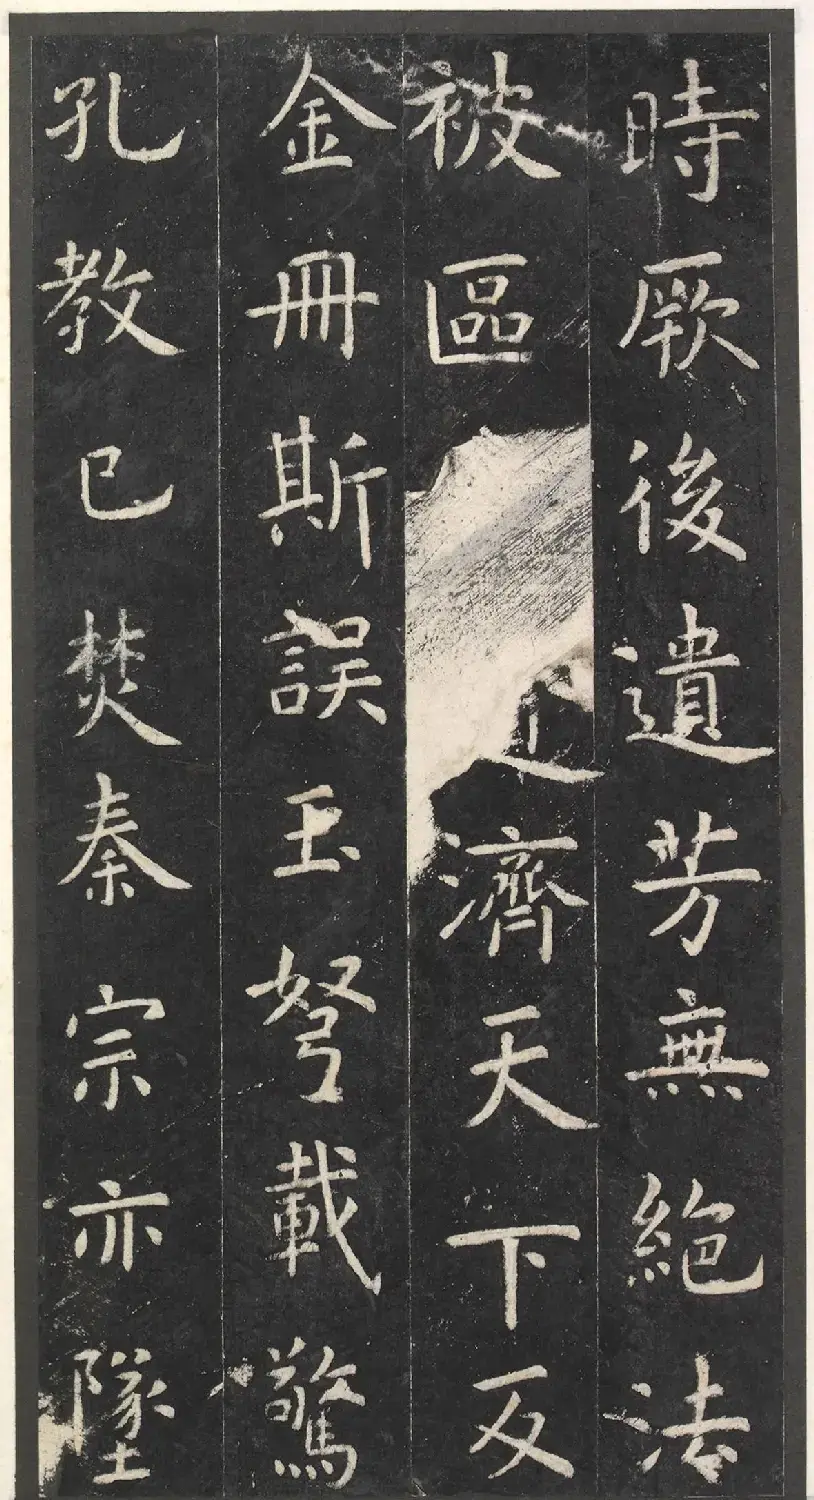 時厥後遺芳無絶法
被區濟天下及
金冊斯誤玉弩載驚
孔教已焚秦宗亦墜